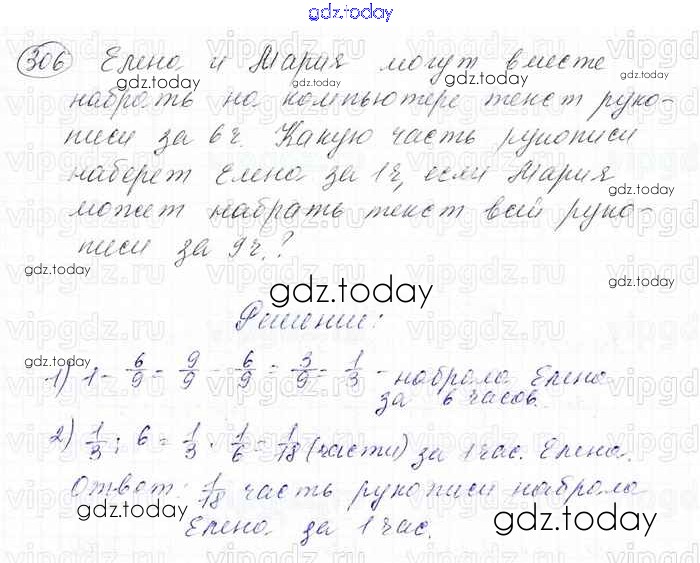 gdz.today
306 Елена и Мария могут вместе
набрать на компьютере текст руко-
писи за 6ч. Какую часть рукописи
наберет Елена за 1ч, если Мария
может набрать текст всей руко-
писи за 9ч.?
gdz.today
Решение:
1) 1 - 6/9 = 9/9 - 6/9 = 3/9 = 1/3 - набрала Елена
за 6 часов.
2) 1/3 : 6 = 1/3 · 1/6 = 1/18 (части) за 1 час. Елена.
Ответ: 1/18 часть рукописи набрала
Елена за 1 час.
gdz.today